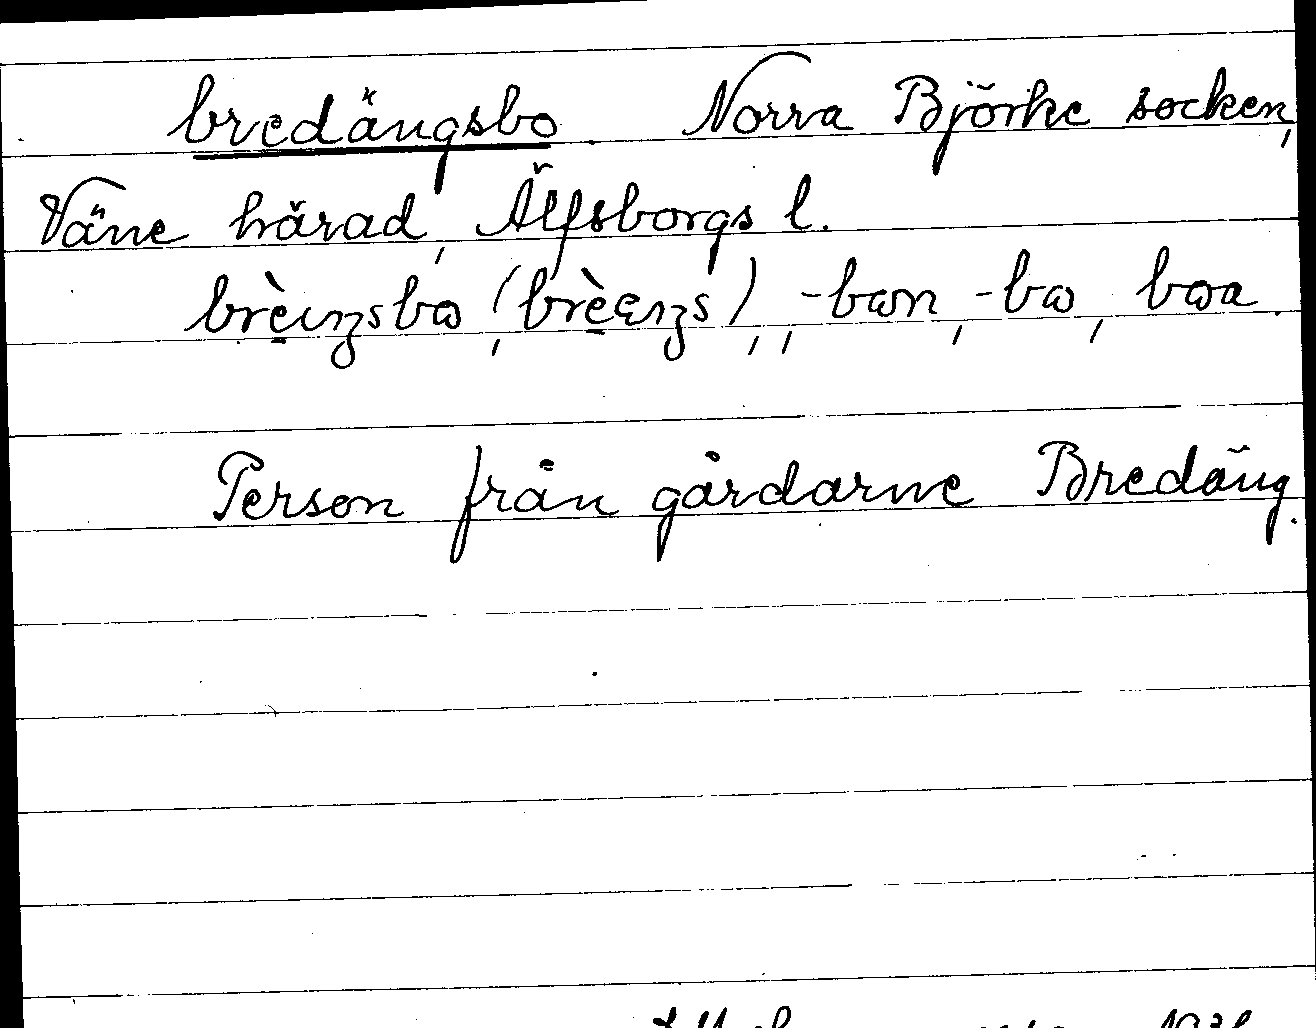 bredängsbo. Norra Björke socken,
Väne härad, Älfsborgs l.
brèŋsbɷ, (brèɛŋs),, -bɷn, -bɷ, bɷa.
Person från gårdarne Bredäng.